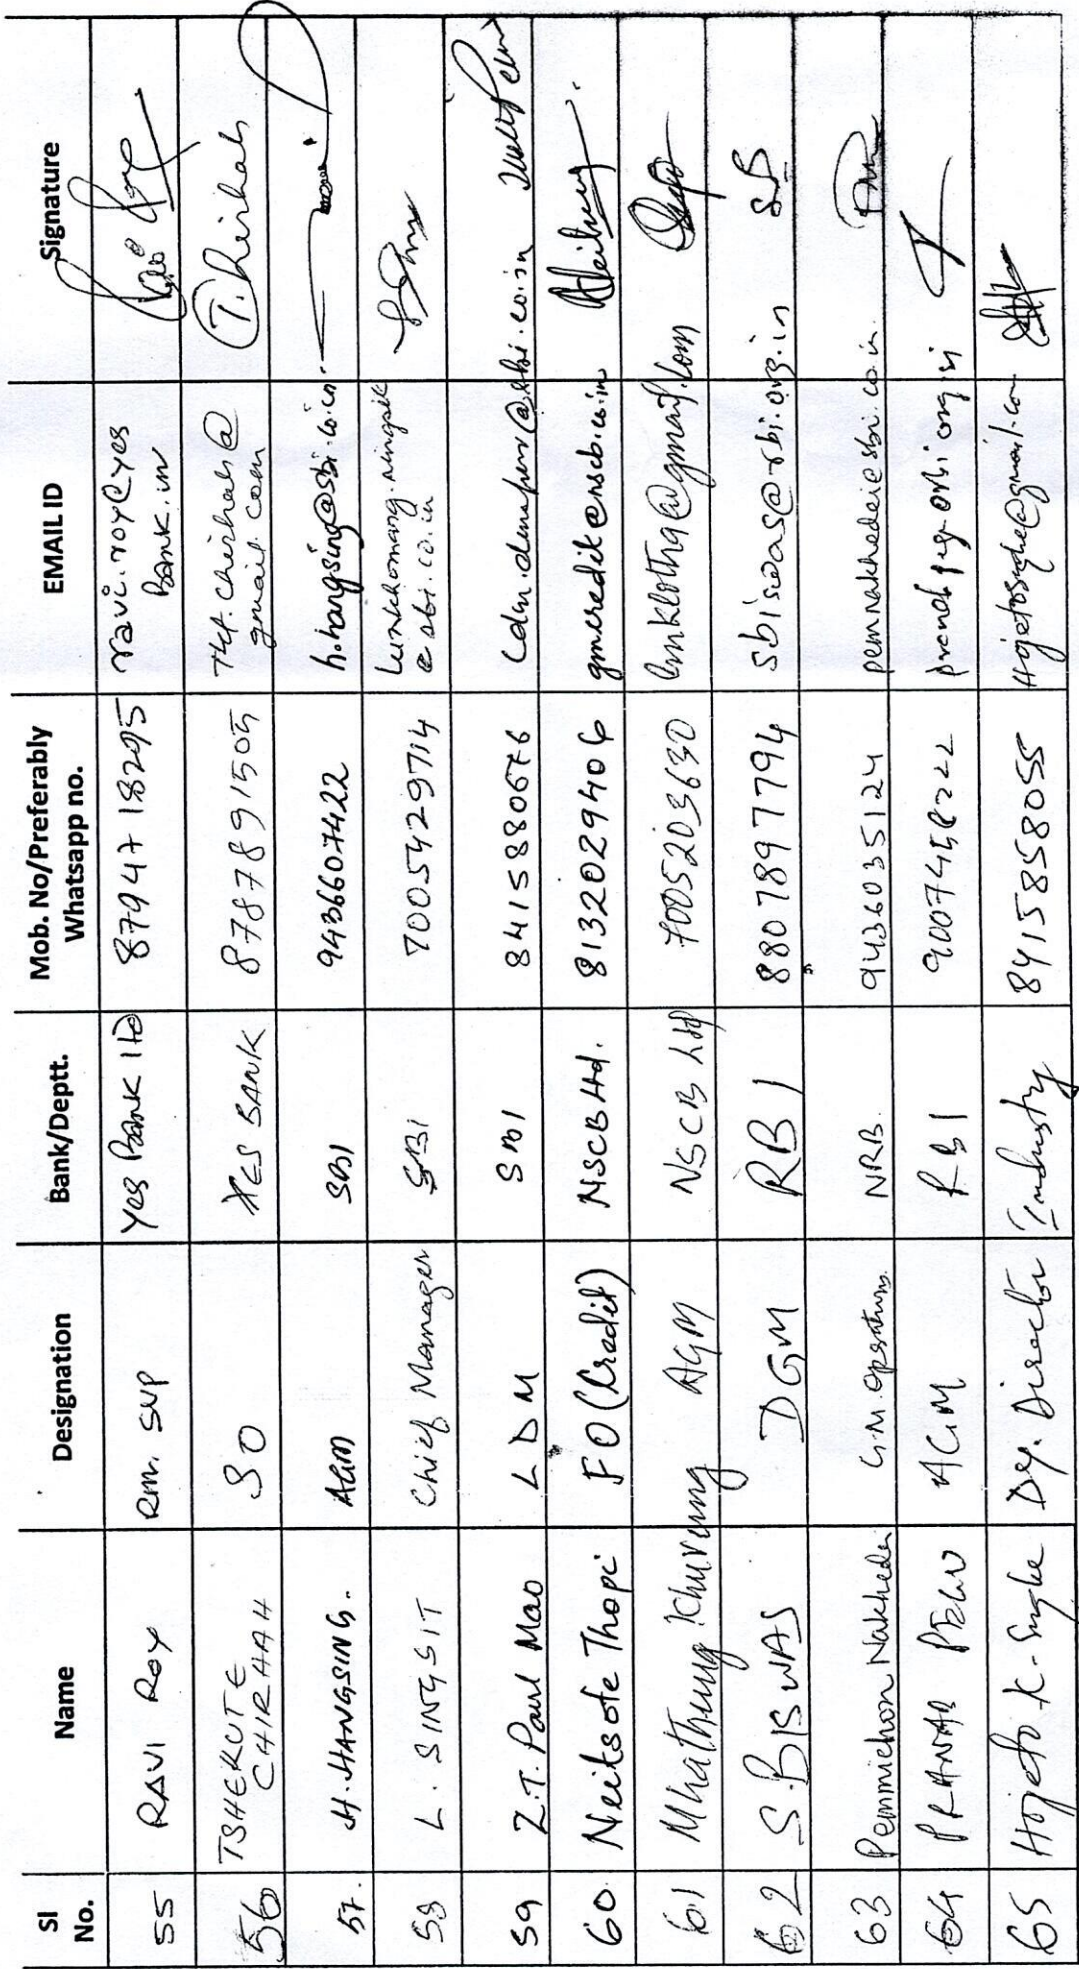 Sl No. Name Designation Bank/Deptt. Mob. No/Preferably Whatsapp no. EMAIL ID Signature
55 RAVI ROY Rm. SVP Yes Bank ltd 8794718295 ravi.roy@yes bank.in
56 TSHEKUTE CHIRHAH SO YES BANK 8787891505 t4t.chirhah@ gmail.com T.Chirhah
57. H.HANGSING. AGM SBI 9436607422 h.hangsing@sbi.co.in
58 L. SINGSIT Chief Manager SBI 7005429714 @sbi.co.in
59 Z.T. Paul Mao LDM SBI 8415880676 ldm.dimapur@sbi.co.in
60. Neitsote Thopi FO (Credit) NSCB Ltd. 8132029406 gmcredit@nscb.co.in
61 Mhathung Khuvung AGM NSCB Ltd 7005203630
62 S.BISWAS DGM RBI 8807897794 sbiswas@rbi.org.in SB
63 Pemmichon Nakhedei G.M. operations NRB. 9436035124
64 PRANAB PEGU AGM RBI
65 Hojeto K. Dep. Director Industry 8415858055